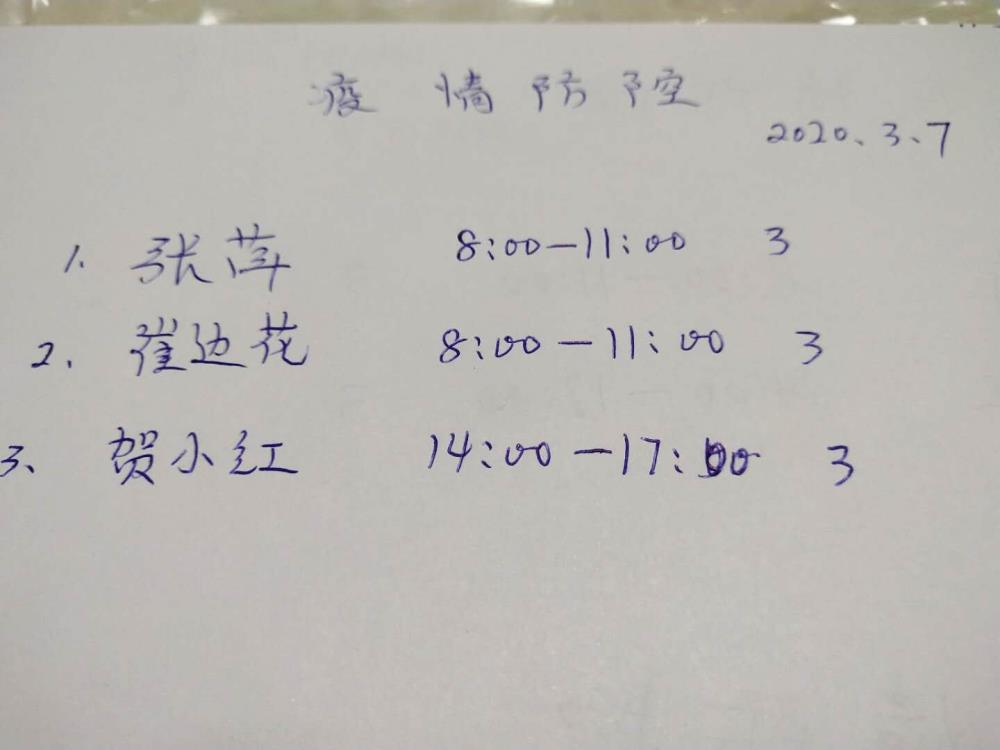 疫情防控
2020、3、7
1. 张萍 8:00—11:00 3
2. 崔边花 8:00—11:00 3
3、贺小红 14:00—17:00 3